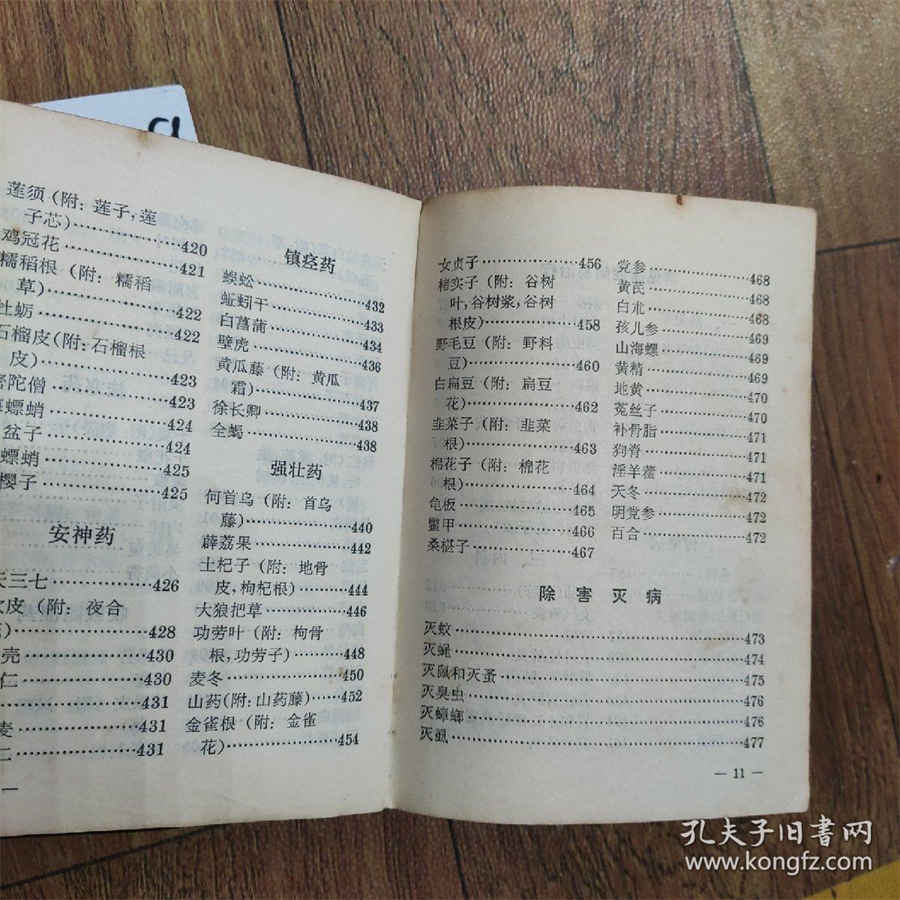 莲须(附:莲子,莲
子芯)……420
鸡冠花……421
糯稻根(附:糯稻
草)……422
牡蛎……422
石榴皮(附:石榴根
皮)……423
陀僧……423
螵蛸……424
盆子……424
螵蛸……425
樱子……425
安神药
三七……426
皮(附:夜合
……428
壳……430
仁……430
……431
麦……431
仁……431
镇痉药
蜈蚣……432
蚯蚓干……433
白菖蒲……434
壁虎……436
黄瓜藤(附:黄瓜
霜)……437
徐长卿……438
全蝎……438
强壮药
何首乌(附:首乌
藤)……440
薜荔果……442
土杞子(附:地骨
皮,枸杞根)……444
大狼把草……446
功劳叶(附:枸骨
根,功劳子)……448
麦冬……450
山药(附:山药藤)……452
金雀根(附:金雀
花)……454
女贞子……456
楮实子(附:谷树
叶,谷树浆,谷树
根皮)……458
野毛豆(附:野料
豆)……460
白扁豆(附:扁豆
花)……462
韭菜子(附:韭菜
根)……463
棉花子(附:棉花
根)……464
龟板……465
鳖甲……466
桑椹子……467
党参……468
黄芪……468
白朮……468
孩儿参……469
山海螺……469
黄精……469
地黄……470
菟丝子……470
补骨脂……471
狗脊……471
淫羊藿……471
天冬……472
明党参……472
百合……472
除害灭病
灭蚊……473
灭蝇……474
灭鼠和灭蚤……475
灭臭虫……476
灭蟑螂……476
灭虱……477
— 11 —
孔夫子旧書网
www.kongfz.com